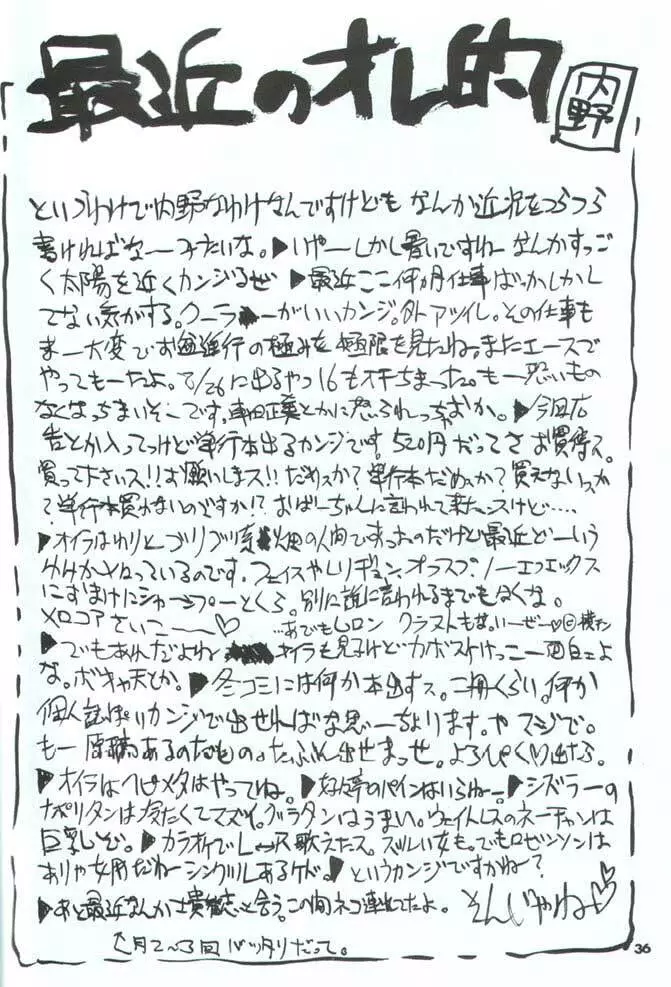 最近のオレ的
内野
というわけで内野なわけなんですけども なんか近況をつらつら
書ければなーみたいな。▶いやーしかし暑いですねーなんかすっご
く太陽を近くカンジるぜ ▶最近ここ何ヵ月仕事ばっかしかし
てない気がする。クーラーがいいカンジ。外アツイし。その仕事も
まー大変です 進行の極みを極限を見たね。またエースで
やってもーたよ。8/26に出るやつ16もオチちまった。もー恐いもの
なくなっちまいそーです。車田正美とかに怒られっちゃおか。▶今回広
告とか入ってっけど単行本出るカンジです。520円だってさ お買得ス。
買って下さいス!!お願いしまス!!だめスか?単行本だめスか?買えないスか
?単行本買わないのですか!?おばーちゃんに言われて来たスけど……
▶オイラはわりとゴリゴリ系 畑の人間ですったのだけど最近どーいう
わけか
のです。フェイスやレリジョン、オフスプ、ノーエフエックス
別に誰に言われるまでもなくな。
メロコアさいこー〜♡ …あでもムロン クラストも
▶でもあれだよね オイラも見るけどカボスけっこー面白ェよ
な。ボキャ天とか。▶冬コミには何か本出すス。二冊くらい。何か
個人誌ぽいカンジで出せればな思ーちょります。や マジで。
もー原稿あるのなもの。たぶん出せまっせ。よろぴく♡出たら
▶オイラはヘビメタはやってね。▶ のパインはいらねー。▶シズラーの
ナポリタンは冷たくてマズイ。グラタンはうまい。ウェイトレスのネーチャンは
巨乳しで。▶カラオケで 歌えたス。ズルい女も。でもロビンソンは
ありゃ女用だねーシングルあるケド。▶というカンジですかね〜?
▶あと最近なんか士貴智志と会う。この間ネコ連れてたよ。そんじゃね♡♡
月2〜3回バッタリだって。
36